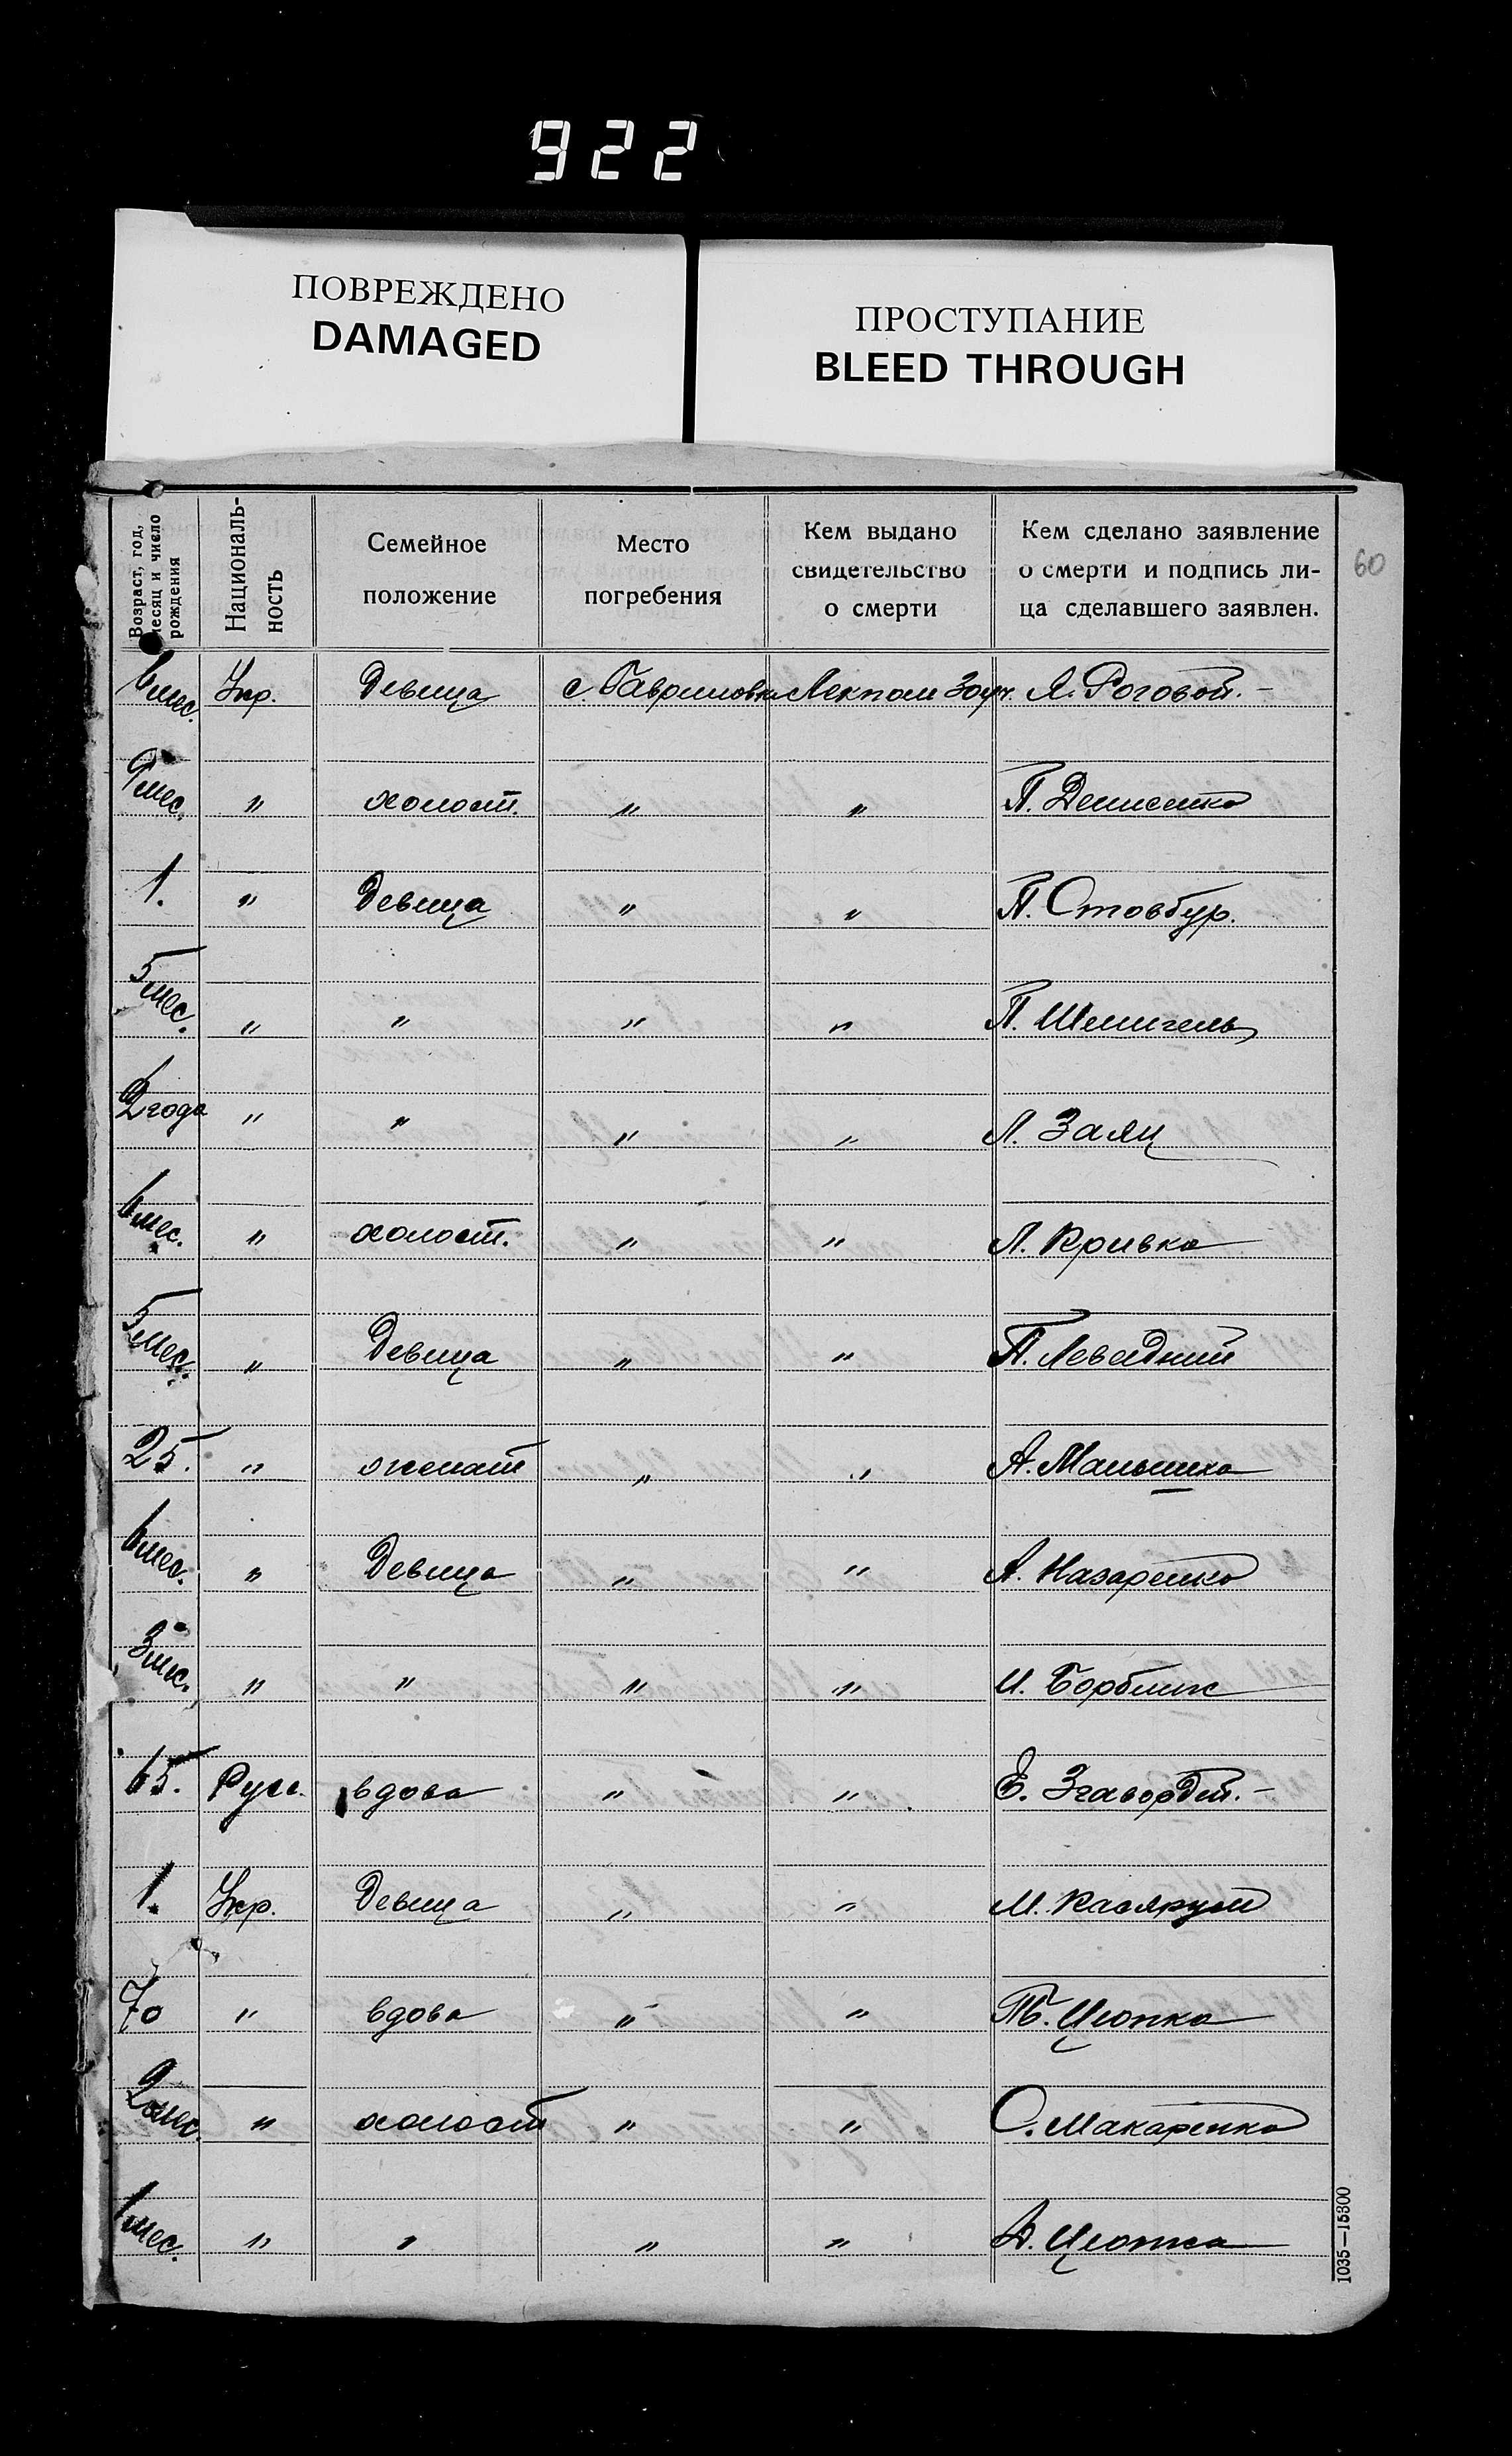 922
ПОВРЕЖДЕНО
DAMAGED
ПРОСТУПАНИЕ
BLEED THROUGH
Возраст, год,
месяц и число
рождения
Националь-
ность
Семейное
положение
Место
погребения
Кем выдано
свидетельство
о смерти
Кем сделано заявление
о смерти и подпись ли-
ца сделавшего заявлен.
60
6 мес. Укр. Девица с. Гавриловка Лекпом Я. Роговой. -
9 мес. " холост. " " П. Денисенко
1. " Девица " " П. Стовбур.
5 мес. " " " " П. Шемигель
2 года " " " " Л. Заяц
6 мес. " холост. " " Л. Кривко
5 мес. " Девица " " П. Левадний
25. " женат " " А.
6 мес. " Девица " " А. Назаренко
3 мес. " " " " И.
65. Русс. вдова " " Е.
1. Укр. Девица " " М.
70 " вдова " " Цюпка
2 мес. " холост " " О. Макаренко
1 мес. " " " " А. Цюпка
1035—15300